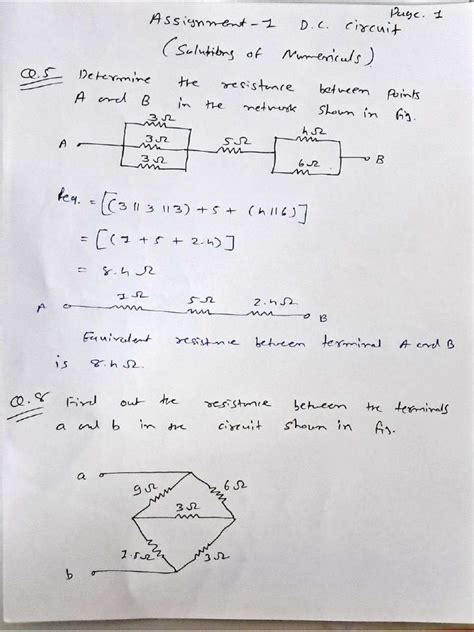 Page. 1
Assignment-1 D.C. circuit
(Solutions of Numericals)
Q.5 Determine the resistance between points
A and B in the network shown in fig.
3Ω
3Ω
3Ω
5Ω
4Ω
6Ω
A
B
Req. = [(3 || 3 || 3) + 5 + (4 || 6)]
= [(1 + 5 + 2.4)]
= 8.4 Ω
A 1Ω 5Ω 2.4Ω B
Equivalent resistance between terminal A and B
is 8.4 Ω.
Q.8 Find out the resistance between the terminals
a and b in the circuit shown in fig.
a
9Ω 6Ω
3Ω
1.5Ω 3Ω
b